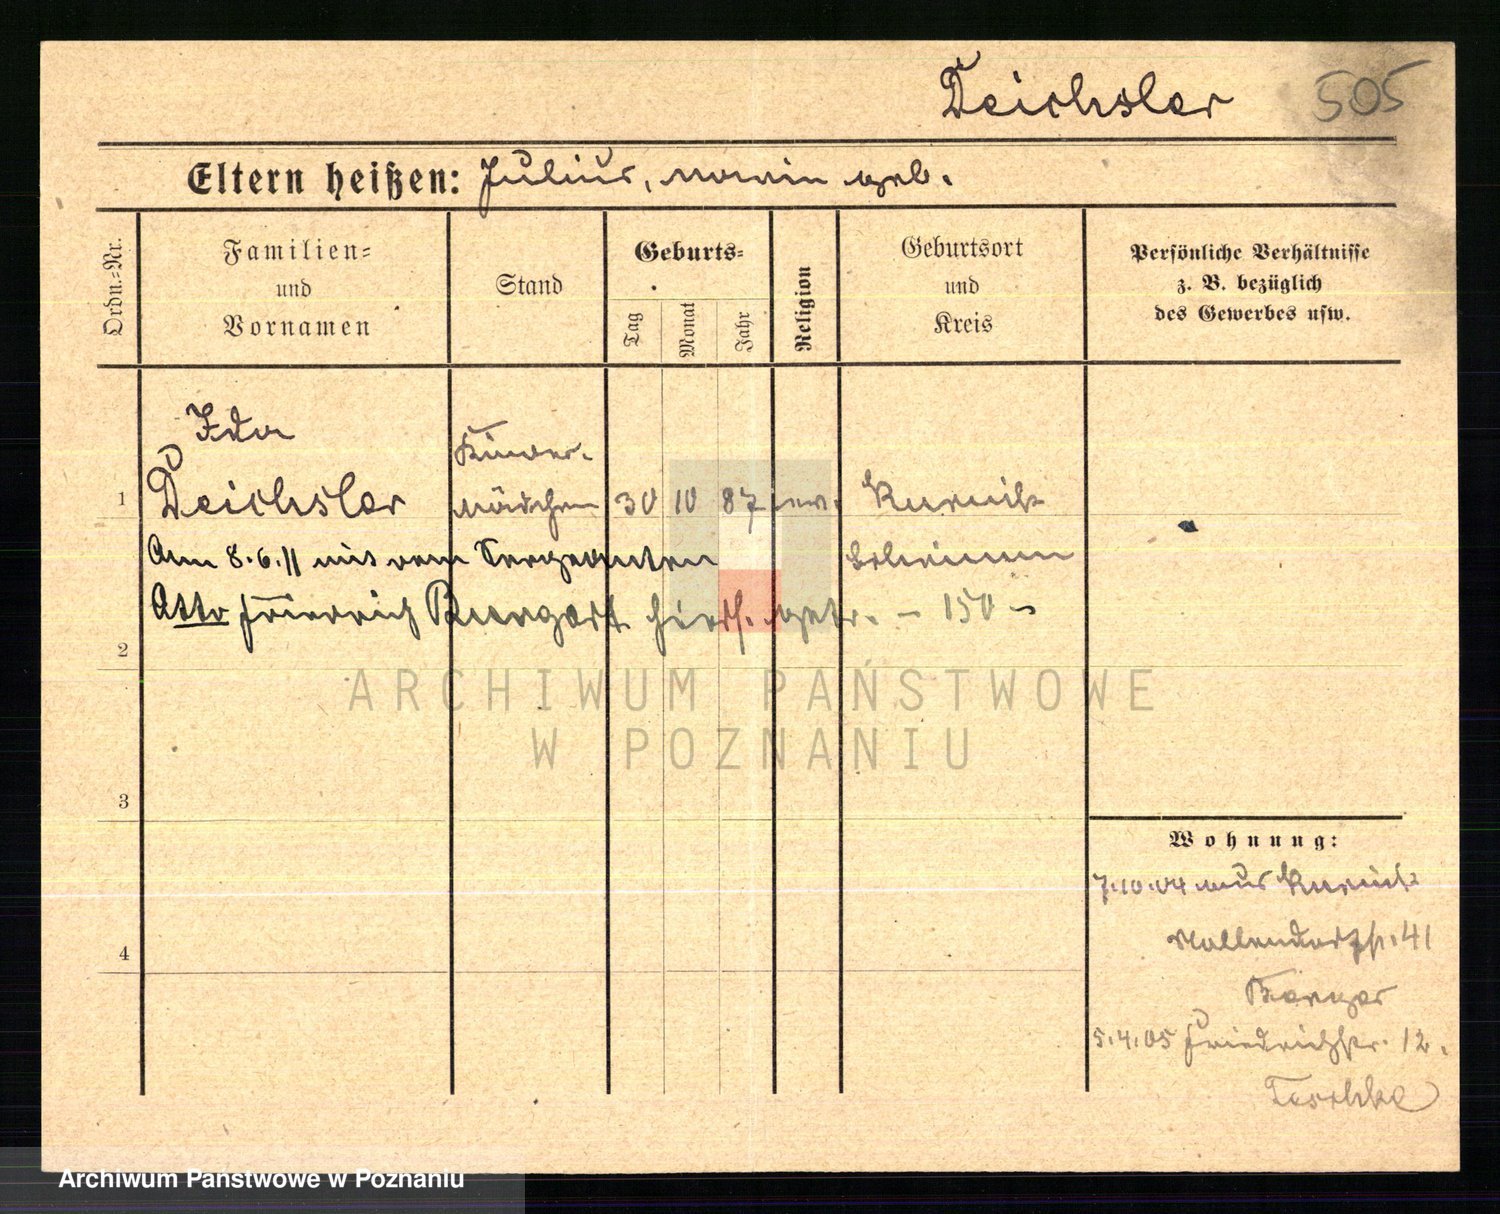 Deichsler 505
Eltern heißen: Julius, geb.
Ordn.=Nr.
Familien=
und
Vornamen
Stand
Geburts=
Tag
Monat
Jahr
Religion
Geburtsort
und
Kreis
Persönliche Verhältnisse
z. B. bezüglich
des Gewerbes usw.
Ida
Kinder-
1 Deichsler mädchen 30 10 87 ev. Kurnik
Am 8.6.11 mit dem Sergeanten
Otto Friedrich hiers. getr. - 150 -
2
ARCHIWUM PAŃSTWOWE
W POZNANIU
3
Wohnung:
7.10.04 aus Kurnik
41
4
5.4.05 Friedrichstr. 12.
Teschke
Archiwum Państwowe w Poznaniu